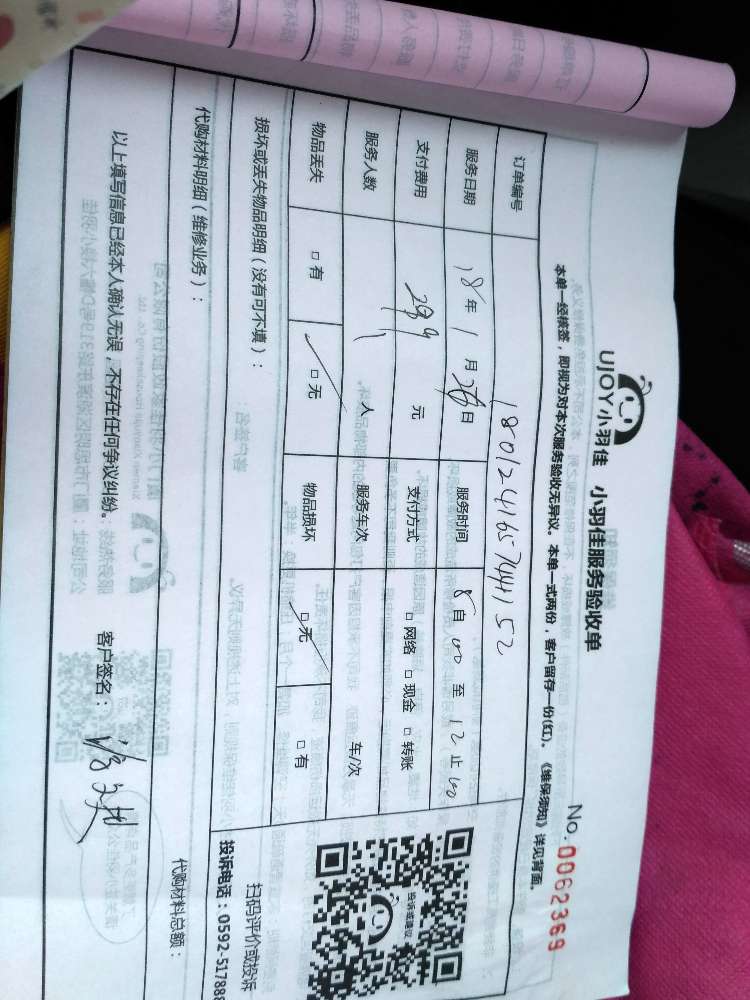 UJOY小羽佳 小羽佳服务验收单
No. 0062369
本单一经核签，即视为对本次服务验收无异议。本单一式两份，客户留存一份(红)。《维保须知》详见背面。
订单编号
服务日期 18年1月28日 服务时间 8自00至12止00
支付费用 299元 支付方式 □网络 □现金 □转账
服务人数 1人 服务车次 车/次
物品丢失 □有 □无 物品损坏 □无 □有
损坏或丢失物品明细（没有可不填）：
投诉或建议
扫码评价或投诉
投诉电话：0592-517888
代购材料明细（维修业务）：
代购材料总额：
以上填写信息已经本人确认无误，不存在任何争议纠纷。 客户签名：